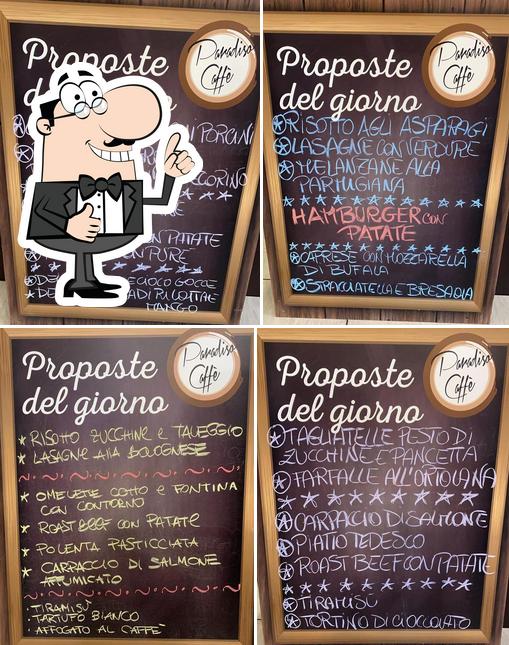 Proposte
Paradiso
Caffè
I PORCINI
CORINO
PATATE
PURE
MANGO
Proposte
del giorno
Paradiso
Caffè
RISOTTO AGLI ASPARAGI
LASAGNE CON VERDURE
MELANZANE ALLA
PARMIGIANA
HAMBURGER CON
PATATE
CAPRESE CON MOZZARELLA
DI BUFALA
STRACCIATELLA E BRESAOLA
Proposte
del giorno
Paradiso
Caffè
RISOTTO ZUCCHINE E TALEGGIO
LASAGNE ALLA BOLOGNESE
OMELETTE COTTO E FONTINA
CON CONTORNO
ROAST BEEF CON PATATE
POLENTA PASTICCIATA
CARPACCIO DI SALMONE
AFFUMICATO
TIRAMISÙ
TARTUFO BIANCO
AFFOGATO AL CAFFÈ
Proposte
del giorno
Paradiso
Caffè
TAGLIATELLE PESTO DI
ZUCCHINE E PANCETTA
FARFALLE ALL'ORTOLANA
CARPACCIO DI SALMONE
PIATTO TEDESCO
ROAST BEEF CON PATATE
TIRAMISÙ
TORTINO DI CIOCCOLATO